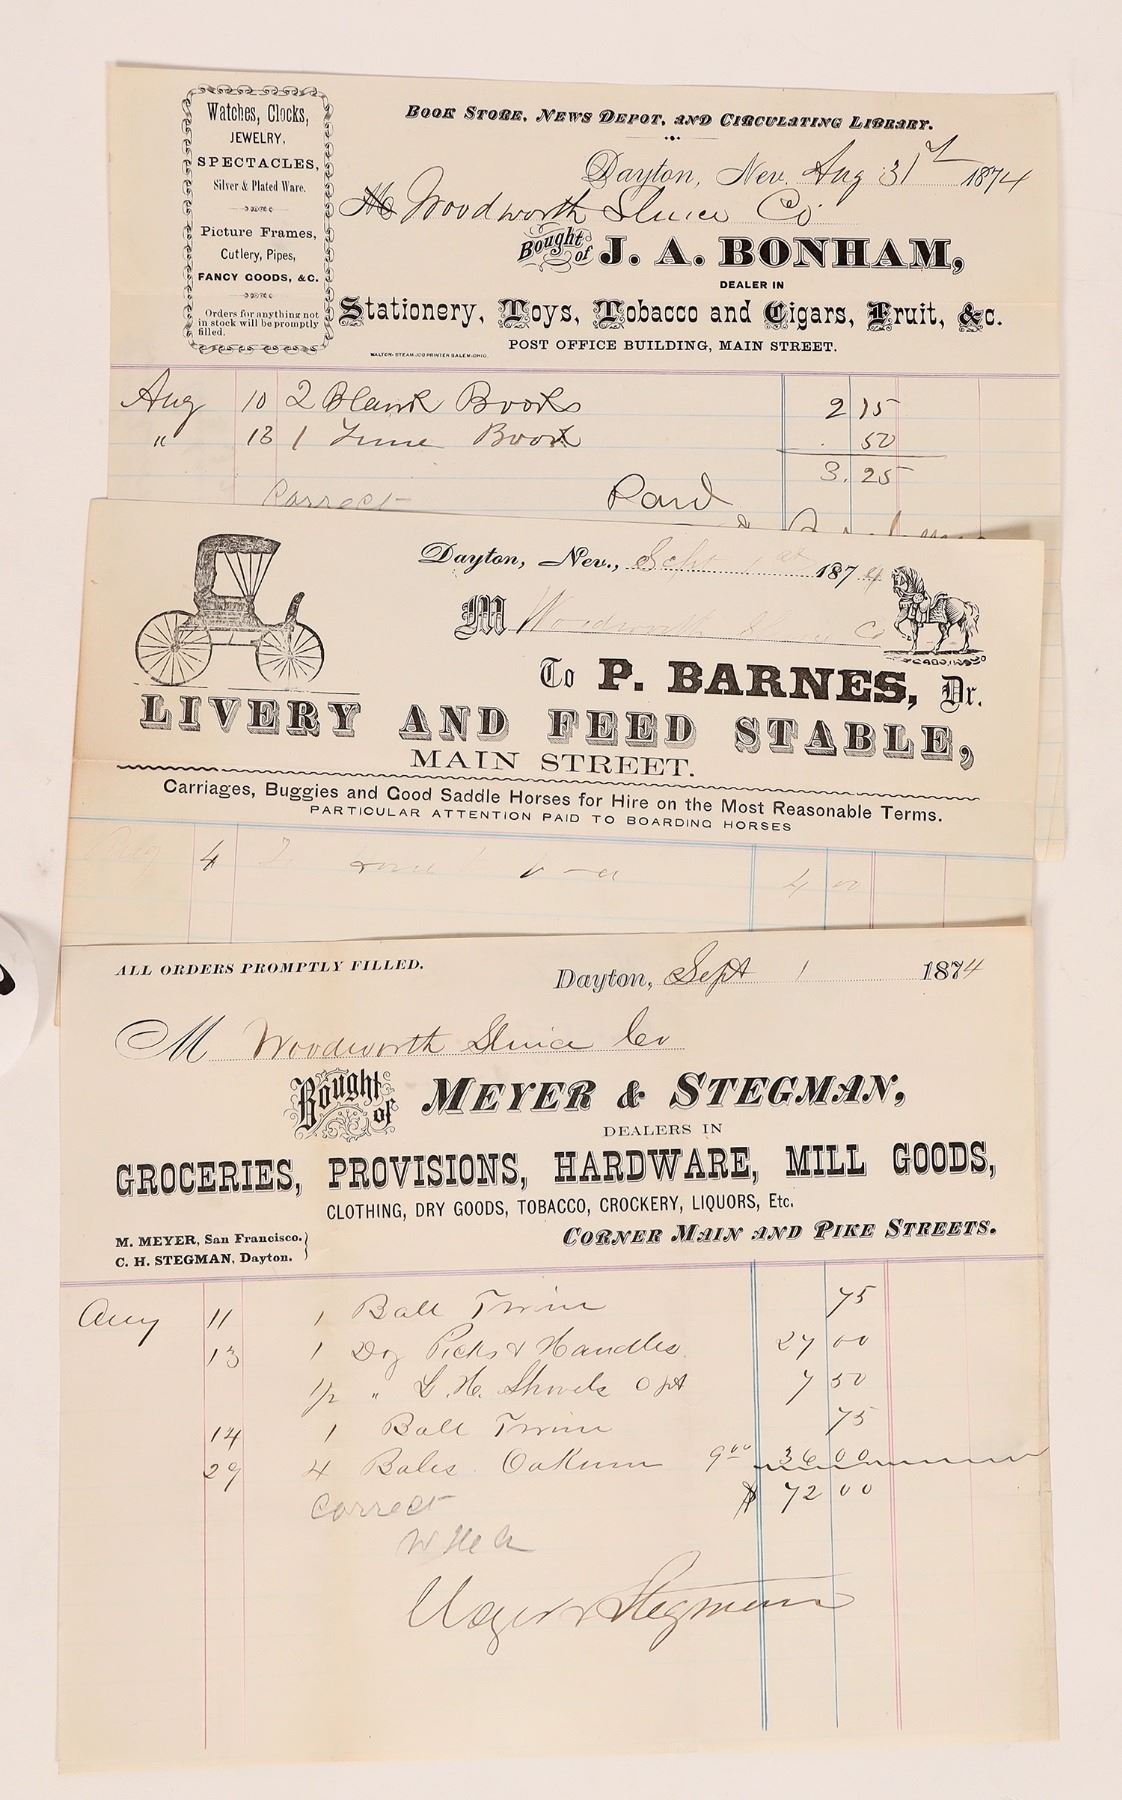 Watches, Clocks,
JEWELRY,
SPECTACLES,
Silver & Plated Ware.
Picture Frames,
Cutlery, Pipes,
FANCY GOODS, &C.
Orders for anything not
in stock will be promptly
filled.
BOOK STORE, NEWS DEPOT, AND CIRCULATING LIBRARY.
Dayton, Nev. Aug 31st 1874
M Woodworth Sluice Co
Bought of J. A. BONHAM,
DEALER IN
Stationery, Toys, Tobacco and Cigars, Fruit, &c.
POST OFFICE BUILDING, MAIN STREET.
WALTON- STEAM JOB PRINTER SALEM-OHIO.
Aug 10 2 Blank Books 2 75
" 13 1 Time Book 50
3.25
Correct Paid
Dayton, Nev., Sept 1st 1874
M Woodworth Sluice Co
To P. BARNES, Dr.
LIVERY AND FEED STABLE,
MAIN STREET.
Carriages, Buggies and Good Saddle Horses for Hire on the Most Reasonable Terms.
PARTICULAR ATTENTION PAID TO BOARDING HORSES
Aug 4 4 00
ALL ORDERS PROMPTLY FILLED.
Dayton, Sept 1 1874
M Woodworth Sluice Co
Bought of MEYER & STEGMAN,
DEALERS IN
GROCERIES, PROVISIONS, HARDWARE, MILL GOODS,
CLOTHING, DRY GOODS, TOBACCO, CROCKERY, LIQUORS, Etc.
M. MEYER, San Francisco.
C. H. STEGMAN, Dayton.
CORNER MAIN AND PIKE STREETS.
Aug 11 1 Ball Twine 75
13 1 Doz Picks & Handles 27 00
1/2 " L. H. Shovels 7 50
14 1 Ball Twine 75
29 4 Bales Oakum 9 00 36 00
Correct $ 72 00
Meyer & Stegman